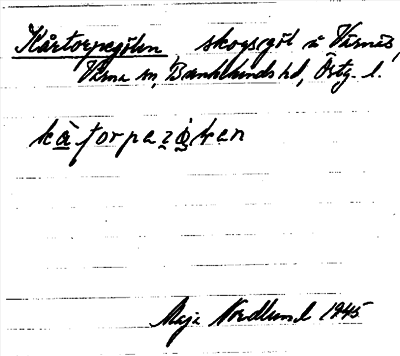 Kårtorpegölen, skogsgöl å Värnäs,
Värna sn, Bankekinds hd, Östg. l.
kåtorpezöken
Maja Nordlund 1945